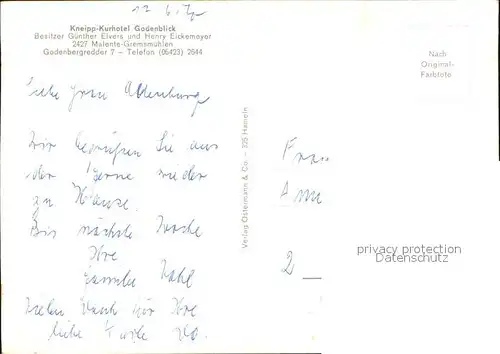 12. 6. 7
Kneipp-Kurhotel Godenblick
Besitzer Günther Elvers und Henry Eickemeyer
2427 Malente-Gremsmühlen
Godenbergredder 7 – Telefon (05423) 2644
Nach
Original-
Farbfoto
Liebe Frau Oldenburg
Wir begrüßen Sie aus
der Ferne wieder
zu Hause.
Bis nächste Woche
Ihre
Familie
Vielen Dank für Ihre
liebe
Verlag Ostermann & Co. – 325 Hameln
Frau
2
privacy protection
Datenschutz